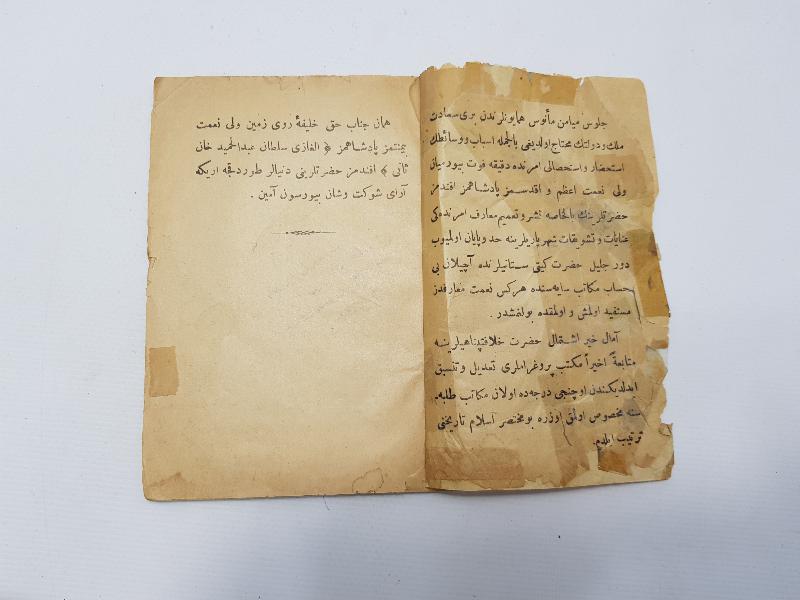 جلوس ميامن مأنوس همايونلرندن برى سعادت
ملك و دولتك محتاج اولديغى بالجمله اسباب و وسائطك
استحضار و استحصالى امرنده دقيقه فوت بيورميان
ولى نعمت اعظم و اقدسمز پادشاهمز افندمز
حضرتلرينك بالخاصه نشر و تعميم معارف امرنده كى
عنايات و تشويقات شهرياريلرينه حد و پايان اولميوب
دور جليل حضرت كيتى ستانيلرنده آچيلان بى
حساب مكاتب سايه سنده هركس نعمت معارفدن
مستفيد اولمش و اولمقده بولنمشدر .
آمال خير اشتمال حضرت خلافتپناهيلرينه
متابعةً اخيراً مكتب پروغراملرى تعديل و تنسيق
ايدلديكندن اوچنجى درجه ده اولان مكاتب طلبه
سنه مخصوص اولمق اوزره بو مختصر اسلام تاريخنى
ترتيب ايلدم.
همان جناب حق خليفهٔ روى زمين ولى نعمت
بيمنتمز پادشاهمز ﴿ الغازى سلطان عبدالحميد خان
ثانى ﴾ افندمز حضرتلرينى دنيالر طوردقجه اريكه
آراى شوكت و شان بيورسون آمين .